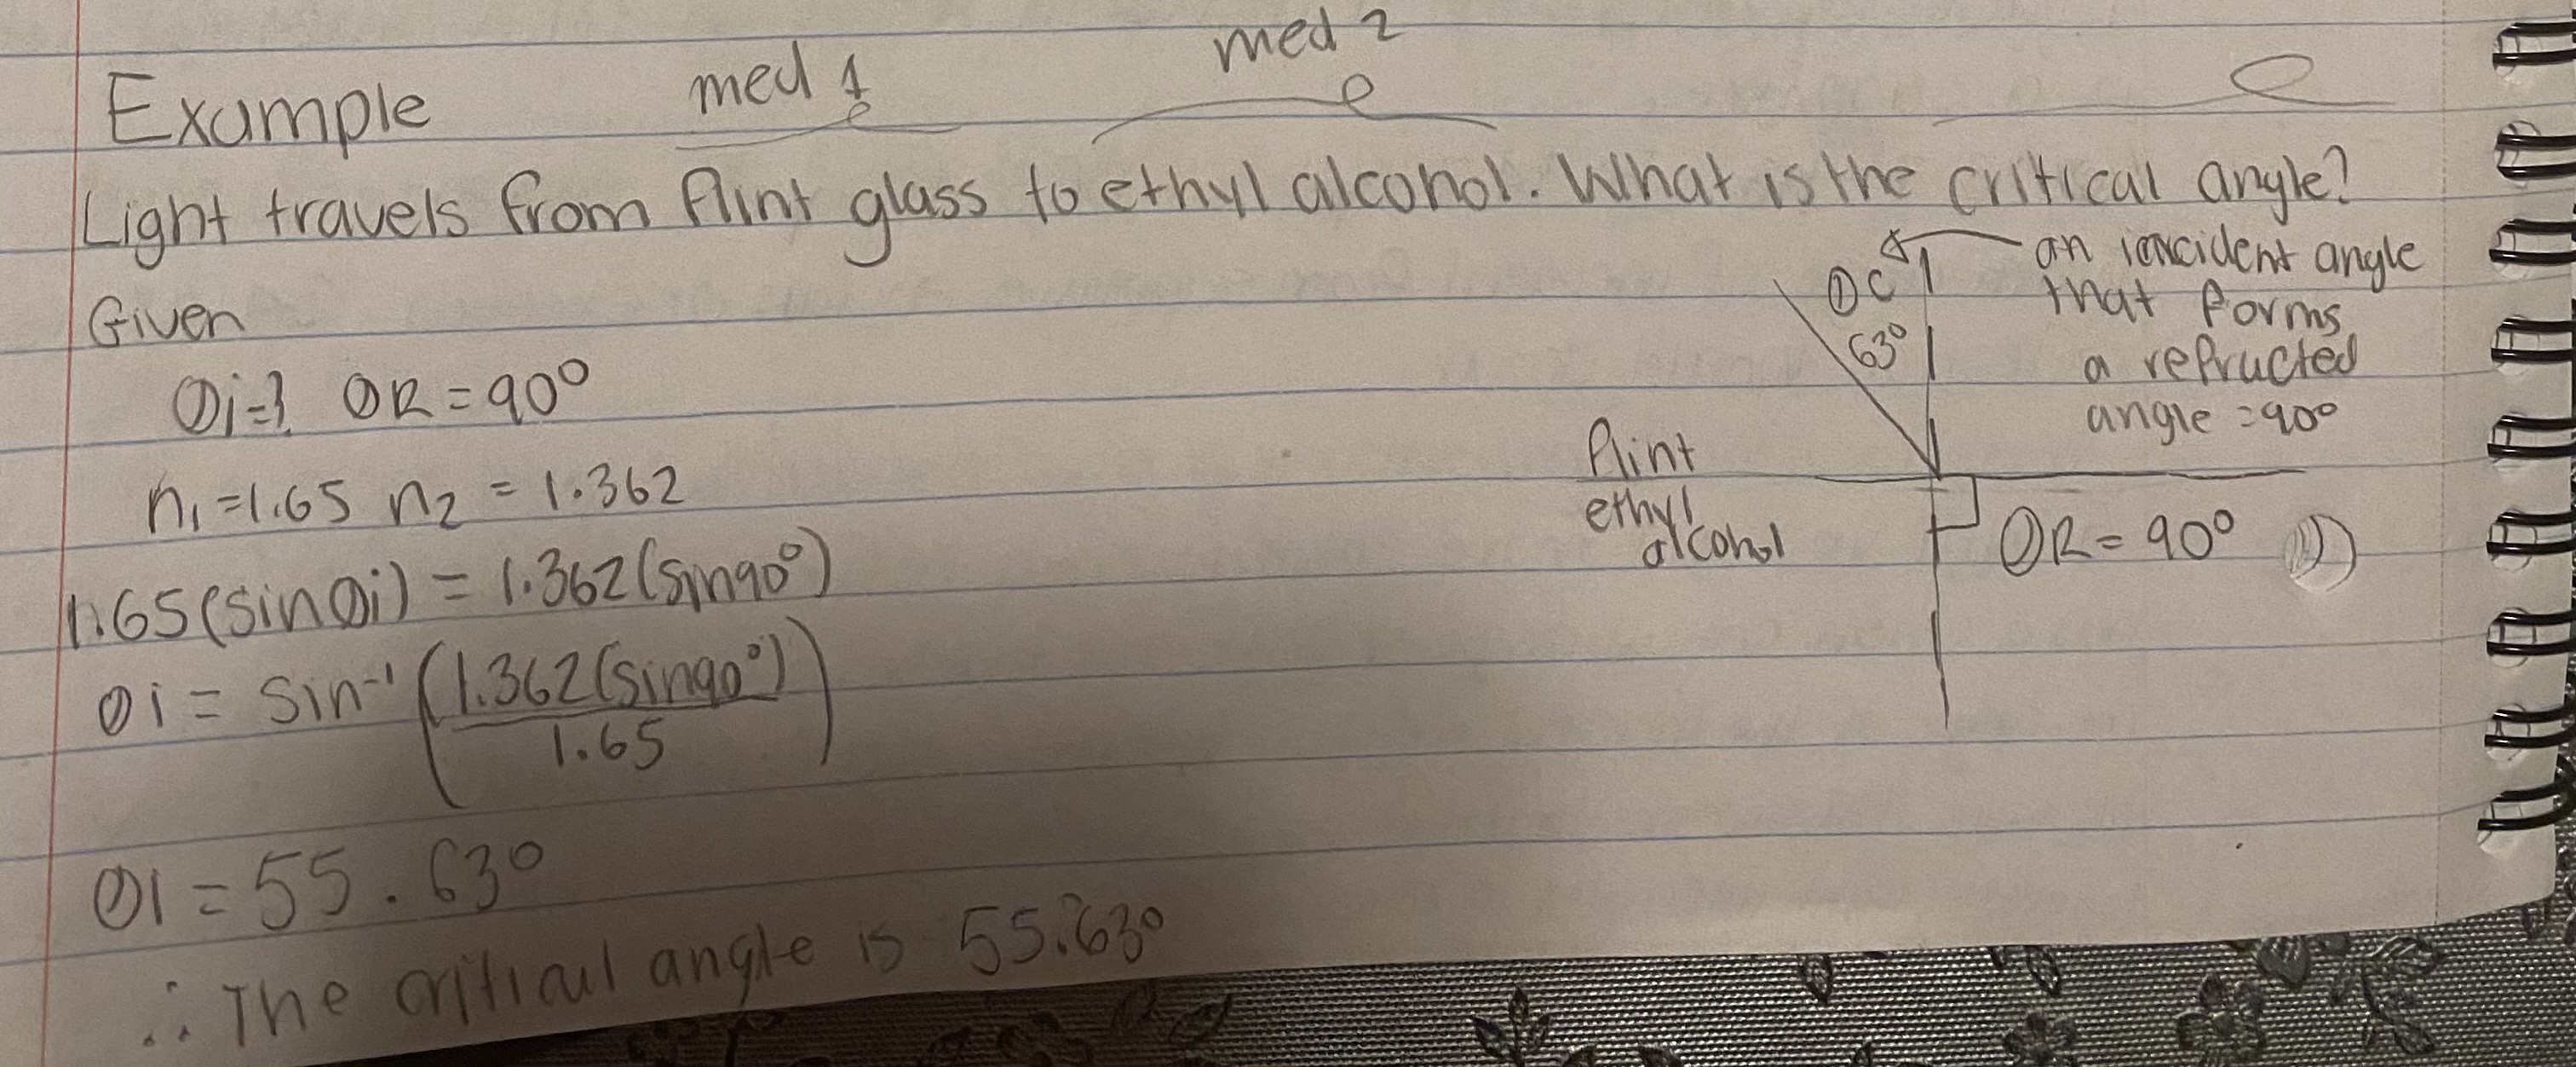 med 1 med 2
Example
Light travels from flint glass to ethyl alcohol. What is the critical angle?
Given
θi=? θR = 90°
n₁=1.65 n₂ = 1.362
1.65(sinθi) = 1.362(sin90°)
θi = sin⁻¹(1.362(sin90°)/1.65)
θi = 55.63°
∴ The critical angle is 55.63°
θc
63°
an incident angle
that forms
a refracted
angle =90°
flint
ethyl
alcohol
θR = 90°